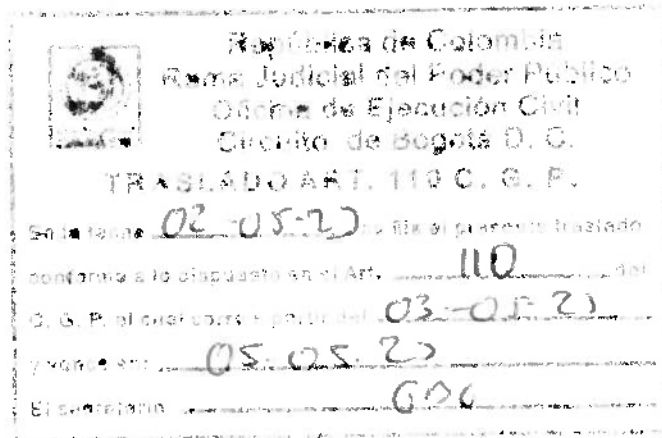 República de Colombia
Rama Judicial del Poder Público
Oficina de Ejecución Civil
Circuito de Bogotá D. C.
TRASLADO ART. 110 C. G. P.
En la fecha 02-05-23 se fija el presente traslado
conforme a lo dispuesto en el Art. 110 del
C. G. P. el cual corre a partir del 03-05-23
y vence en: 05-05-23
El secretario